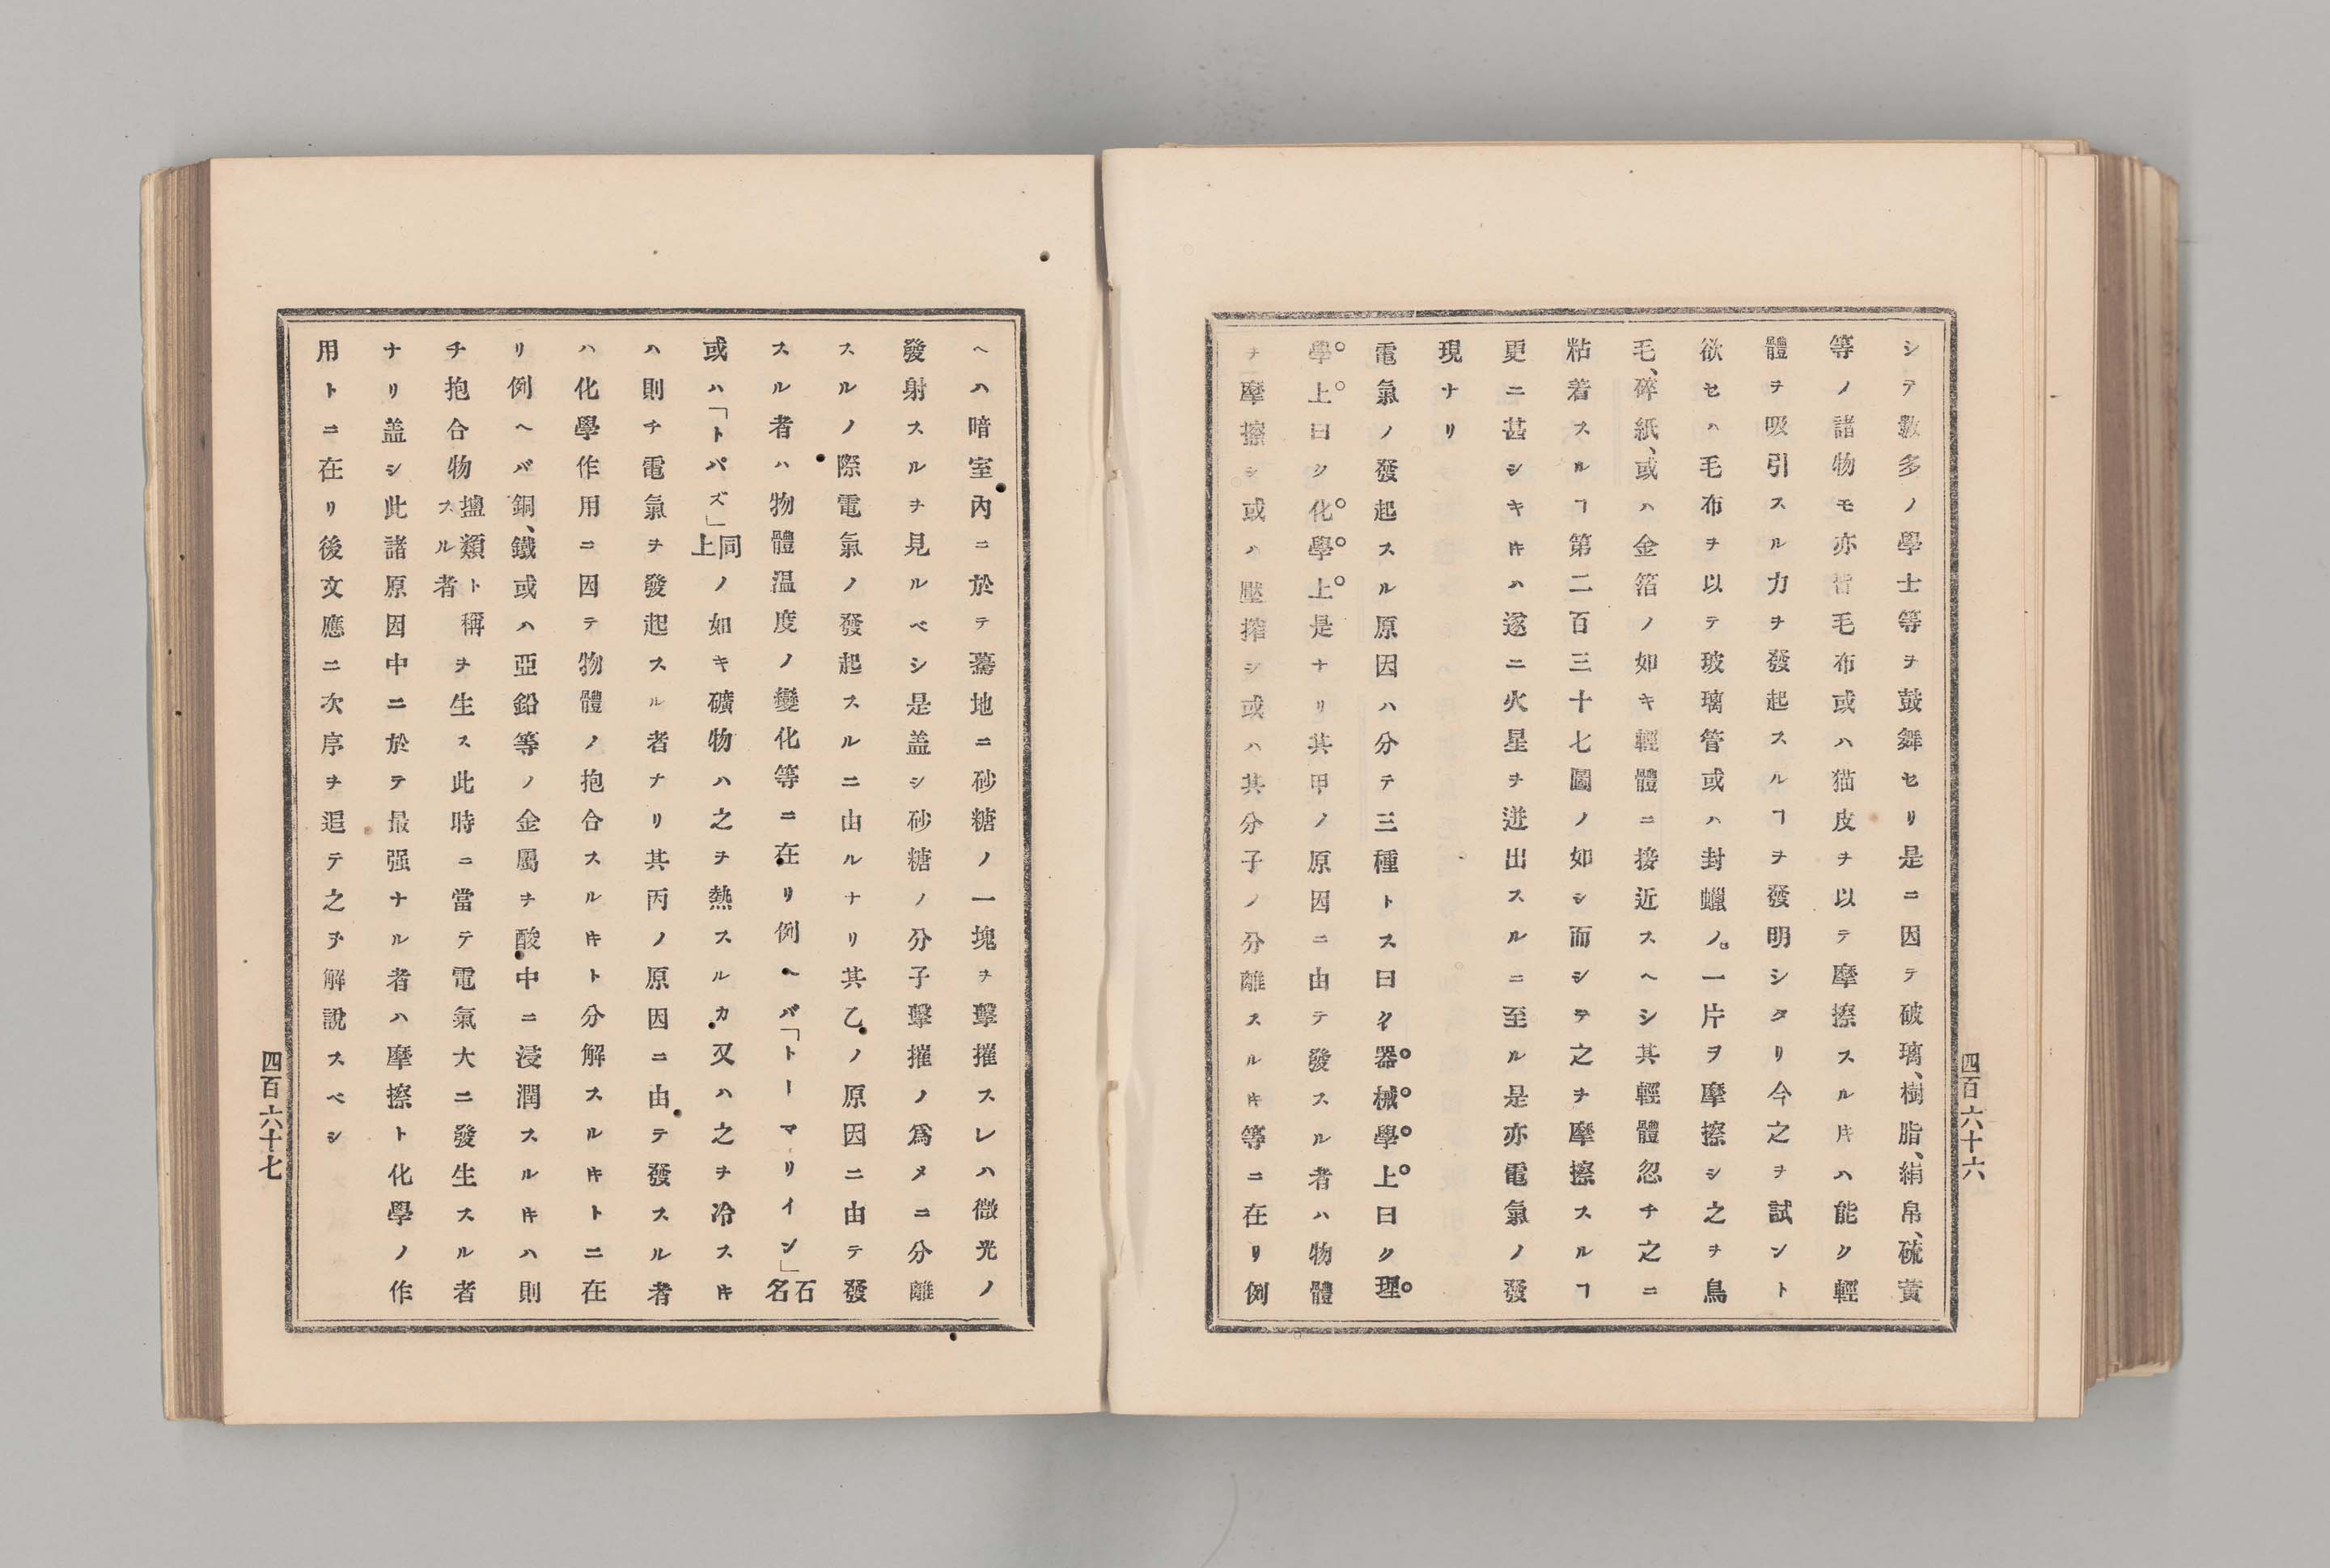 シテ數多ノ學士等ヲ鼓舞セリ是ニ因テ破璃、樹脂、絹帛、硫黃
等ノ諸物モ亦皆毛布或ハ猫皮ヲ以テ摩擦スルキハ能ク輕
體ヲ吸引スル力ヲ發起スルヿヲ發明シタリ今之ヲ試ント
欲セハ毛布ヲ以テ玻璃管或ハ封蠟ノ一片ヲ摩擦シ之ヲ鳥
毛、碎紙、或ハ金箔ノ如キ輕體ニ接近スヘシ其輕體忽チ之ニ
粘着スルヿ第二百三十七圖ノ如シ而シテ之ヲ摩擦スルヿ
更ニ甚シキキハ遂ニ火星ヲ迸出スルニ至ル是亦電氣ノ發
現ナリ
電氣ノ發起スル原因ハ分テ三種トス曰ク器械學上曰ク理
學上曰ク化學上是ナリ其甲ノ原因ニ由テ發スル者ハ物體
ヲ摩擦シ或ハ壓搾シ或ハ其分子ノ分離スルキ等ニ在リ例
四百六十六
ヘハ暗室內ニ於テ驀地ニ砂糖ノ一塊ヲ擊摧スレハ微光ノ
發射スルヲ見ルベシ是盖シ砂糖ノ分子擊摧ノ爲メニ分離
スルノ際電氣ノ發起スルニ由ルナリ其乙ノ原因ニ由テ發
スル者ハ物體温度ノ變化等ニ在リ例ヘバ「トーマリイン」石名
或ハ「トパズ」同上ノ如キ礦物ハ之ヲ熱スルカ又ハ之ヲ冷スキ
ハ則チ電氣ヲ發起スル者ナリ其丙ノ原因ニ由テ發スル者
ハ化學作用ニ因テ物體ノ抱合スルキト分解スルキトニ在
リ例ヘバ銅、鐵或ハ亞鉛等ノ金屬ヲ酸中ニ浸潤スルキハ則
チ抱合物鹽類ト稱スル者ヲ生ス此時ニ當テ電氣大ニ發生スル者
ナリ盖シ此諸原因中ニ於テ最强ナル者ハ摩擦ト化學ノ作
用トニ在リ後文應ニ次序ヲ追テ之ヲ解說スベシ
四百六十七